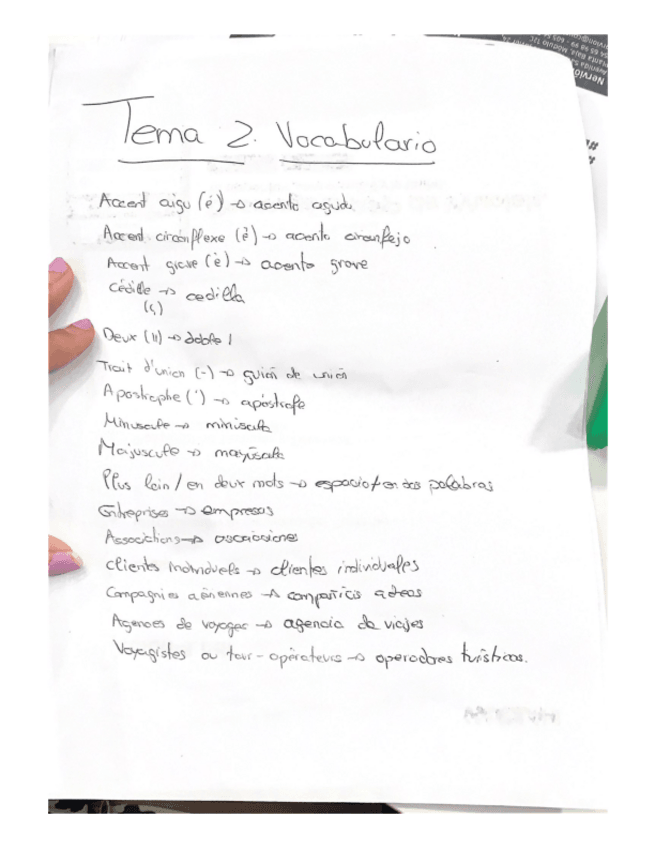 Tema 2. Vocabulario
Accent aigu (é) → acento agudo
Accent circonflexe (ê) → acento circunflejo
Accent grave (è) → acento grave
Cédille → cedilla
(ç)
Deux (ll) → doble l
Trait d'union (-) → guión de unión
Apostrophe (') → apóstrofe
Minuscule → minúscula
Majuscule → mayúscula
Plus loin / en deux mots → espacio / en dos palabras
Entreprises → empresas
Associations → asociaciones
clients individuels → clientes individuales
Compagnies aériennes → compañías aéreas
Agences de voyages → agencia de viajes
Voyagistes ou tour-opérateurs → operadores turísticos.